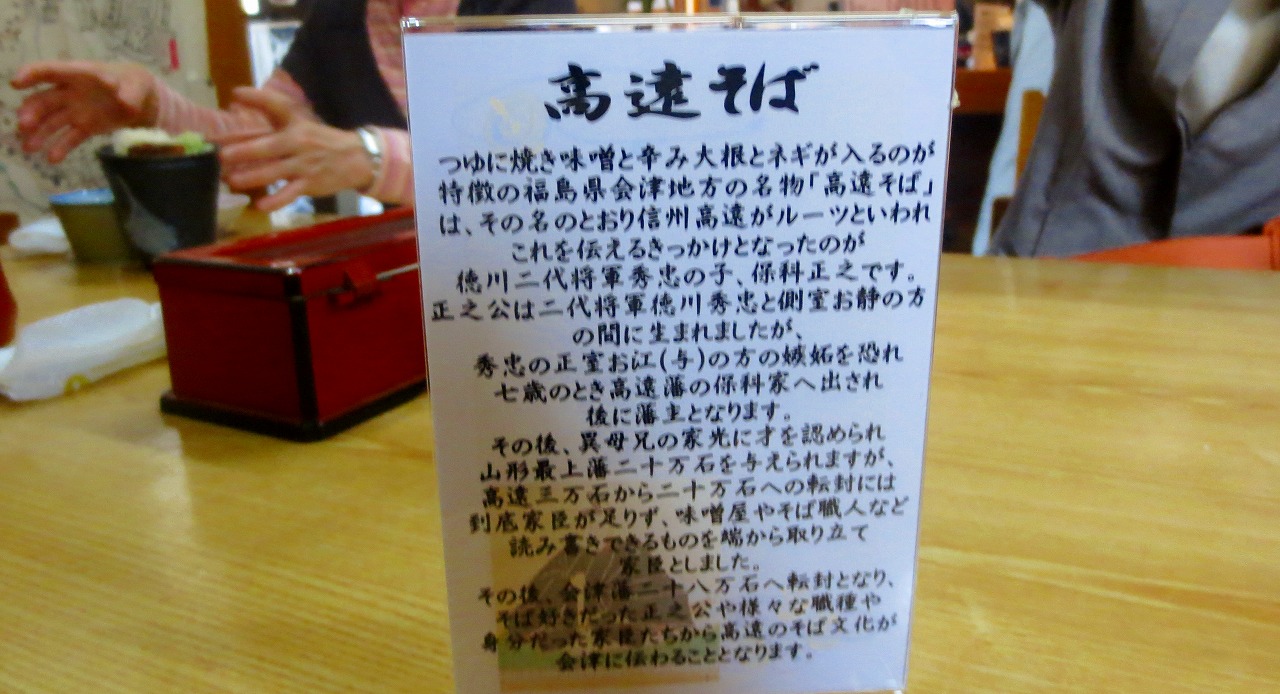 高遠そば
つゆに焼き味噌と辛み大根とネギが入るのが
特徴の福島県会津地方の名物「高遠そば」
は、その名のとおり信州高遠がルーツといわれ
これを伝えるきっかけとなったのが
徳川二代将軍秀忠の子、保科正之です。
正之公は二代将軍徳川秀忠と側室お静の方
の間に生まれましたが、
秀忠の正室お江(与)の方の嫉妬を恐れ
七歳のとき高遠藩の保科家へ出され
後に藩主となります。
その後、異母兄の家光に才を認められ
山形最上藩二十万石を与えられますが、
高遠三万石から二十万石への転封には
到底家臣が足りず、味噌屋やそば職人など
読み書きできるものを端から取り立て
家臣としました。
その後、会津藩二十八万石へ転封となり、
そば好きだった正之公や様々な職種や
身分だった家臣たちから高遠のそば文化が
会津に伝わることとなります。